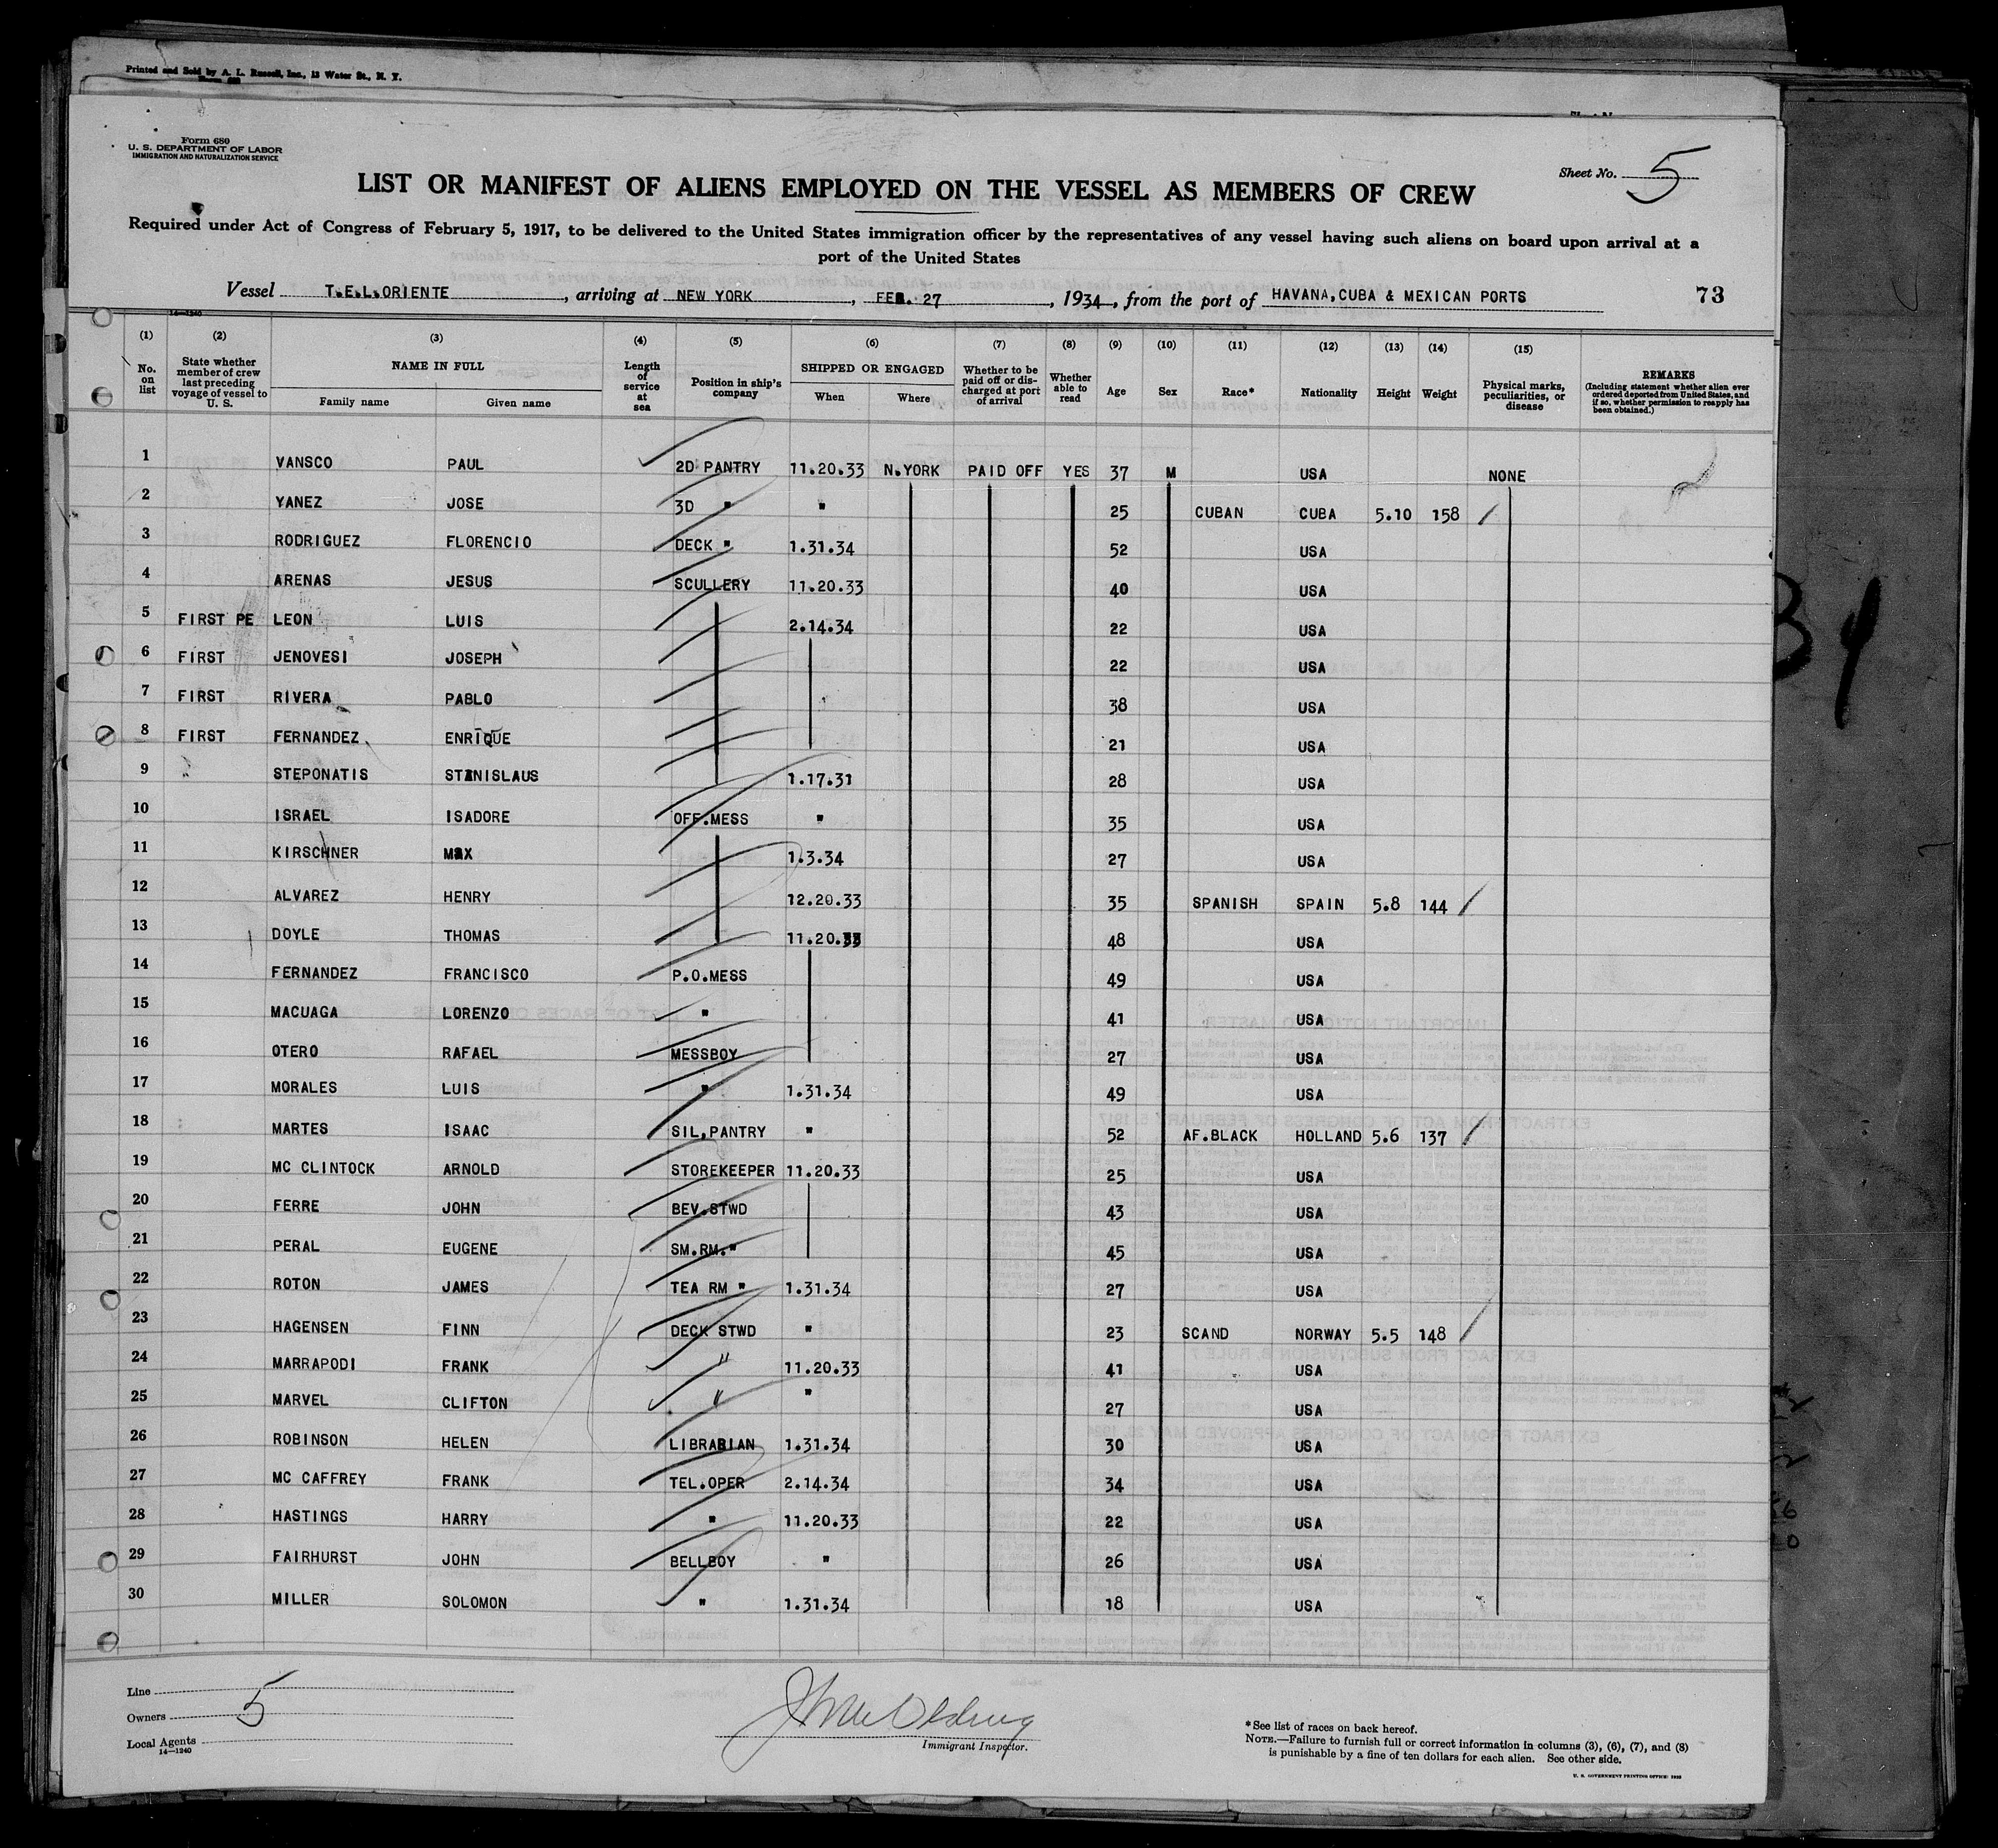 Printed and Sold by A. L. Russell, Inc., 13 Water St., N. Y.
Form 680
U. S. DEPARTMENT OF LABOR
IMMIGRATION AND NATURALIZATION SERVICE
Sheet No. 5
LIST OR MANIFEST OF ALIENS EMPLOYED ON THE VESSEL AS MEMBERS OF CREW
Required under Act of Congress of February 5, 1917, to be delivered to the United States immigration officer by the representatives of any vessel having such aliens on board upon arrival at a
port of the United States
Vessel T.E.L.ORIENTE, arriving at NEW YORK, FEB. 27, 1934, from the port of HAVANA,CUBA & MEXICAN PORTS 73
14-1240
(1) (2) (3) (4) (5) (6) (7) (8) (9) (10) (11) (12) (13) (14) (15)
No. on list State whether member of crew last preceding voyage of vessel to U. S. NAME IN FULL Family name Given name Length of service at sea Position in ship's company SHIPPED OR ENGAGED When Where Whether to be paid off or discharged at port of arrival Whether able to read Age Sex Race* Nationality Height Weight Physical marks, peculiarities, or disease REMARKS (Including statement whether alien ever ordered deported from United States, and if so, whether permission to reapply has been obtained.)
1 VANSCO PAUL 2D PANTRY 11.20.33 N.YORK PAID OFF YES 37 M USA NONE
2 YANEZ JOSE 3D " " 25 CUBAN CUBA 5.10 158
3 RODRIGUEZ FLORENCIO DECK " 1.31.34 52 USA
4 ARENAS JESUS SCULLERY 11.20.33 40 USA
5 FIRST PE LEON LUIS 2.14.34 22 USA
6 FIRST JENOVESI JOSEPH 22 USA
7 FIRST RIVERA PABLO 38 USA
8 FIRST FERNANDEZ ENRIQUE 21 USA
9 STEPONATIS STANISLAUS 1.17.31 28 USA
10 ISRAEL ISADORE OFF.MESS " 35 USA
11 KIRSCHNER MAX 1.3.34 27 USA
12 ALVAREZ HENRY 12.20.33 35 SPANISH SPAIN 5.8 144
13 DOYLE THOMAS 11.20.33 48 USA
14 FERNANDEZ FRANCISCO P.O.MESS 49 USA
15 MACUAGA LORENZO " 41 USA
16 OTERO RAFAEL MESSBOY 27 USA
17 MORALES LUIS " 1.31.34 49 USA
18 MARTES ISAAC SIL,PANTRY " 52 AF.BLACK HOLLAND 5.6 137
19 MC CLINTOCK ARNOLD STOREKEEPER 11.20.33 25 USA
20 FERRE JOHN BEV.STWD 43 USA
21 PERAL EUGENE SM.RM." 45 USA
22 ROTON JAMES TEA RM " 1.31.34 27 USA
23 HAGENSEN FINN DECK STWD " 23 SCAND NORWAY 5.5 148
24 MARRAPODI FRANK " 11.20.33 41 USA
25 MARVEL CLIFTON " " 27 USA
26 ROBINSON HELEN LIBRARIAN 1.31.34 30 USA
27 MC CAFFREY FRANK TEL.OPER 2.14.34 34 USA
28 HASTINGS HARRY " 11.20.33 22 USA
29 FAIRHURST JOHN BELLBOY " 26 USA
30 MILLER SOLOMON " 1.31.34 18 USA
Line
Owners 5
Local Agents
14-1240
Immigrant Inspector.
*See list of races on back hereof.
NOTE.—Failure to furnish full or correct information in columns (3), (6), (7), and (8)
is punishable by a fine of ten dollars for each alien. See other side.
U. S. GOVERNMENT PRINTING OFFICE: 1933